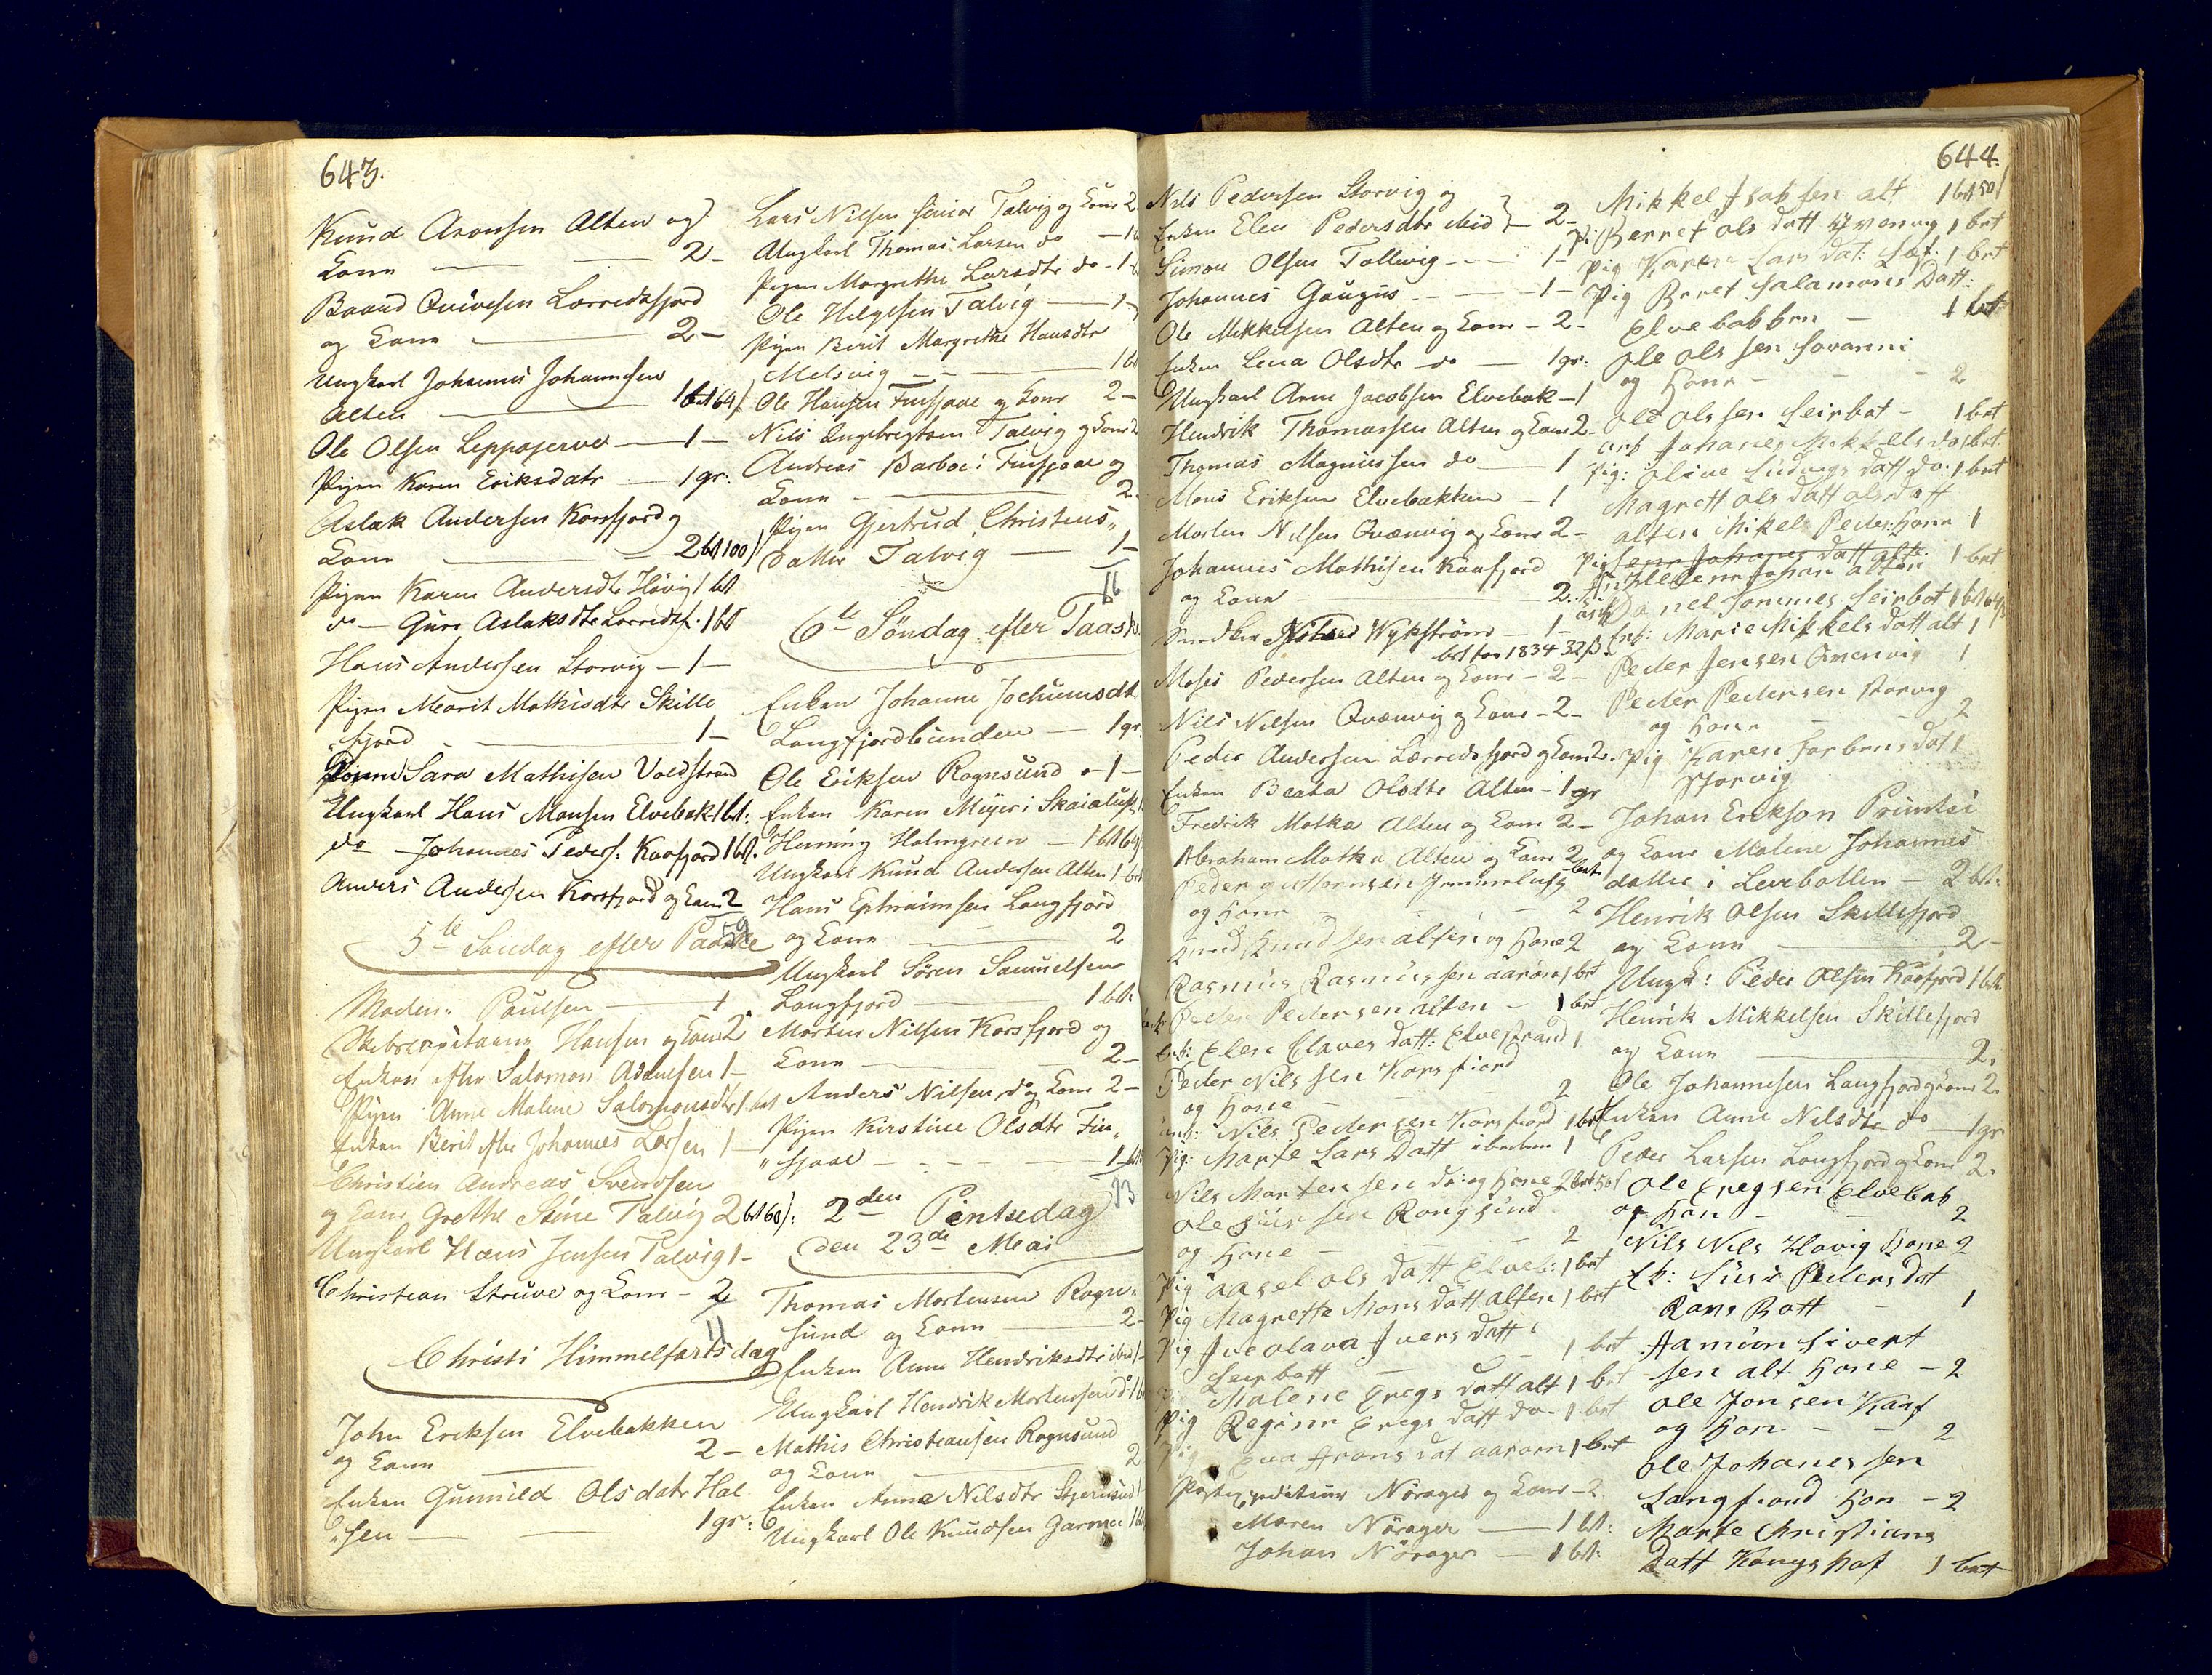 643.
Knud Aronsen Alten og
Kone 2-
Baard Qvivesen Lerredsfjord
og Kone 2-
Ungkarl Johannes Johannesen
Alten 1 bt 64/
Ole Olsen Leppojerve 1-
Pigen Karen Eriksdatr 1 gr:
Aslak Andersen Korsfjord og
Kone 2 bt 100/
Pigen Karen Andersdtr Høvig 1 bt
do - Guro Aslaksdtr Lerredsf. 1 bt
Hans Andersen Storvig - 1 -
Pigen Marit Mathisdtr Skille
"fjord 1-
Sara Mathisen Voldstrand
Ungkarl Hans Monsen Elvebak 1 bt:
do - Johannes Peders: Kaafjord 1 bt.
Anders Andersen Korsfjord og Kone 2
59
5te Søndag efter Paaske
Madm: Paulsen 1
Skibscapitaine Hansen og Kone 2
Enken efter Salomon Adamsen 1-
Pigen Anne Malene Salomonsdtr 1 bt
Enken Berit efter Johannes Larsen 1-
Christian Andreas Svendsen
og Kone Grethe Stine Talvig 2 bt 60/:
Ungkarl Hans Jensen Talvig 1-
Christian Struve og Kone - 2
11
Christi Himmelfartsdag
John Eriksen Elvebakken
og Kone 2-
Enken Gunnild Olsdatr Hal
"sen 1 gr:
Lars Nilsen senior Talvig og Kone 2.
Ungkarl Thomas Larsen do - 1
Pigen Margrethe Larsdtr do - 1
Ole Helgesen Talvig 1-
Pigen Berit Margrethe Hansdtr
Melsvig 1 bt
Ole Hansen Finsjaae og Kone 2-
Nils Ingebrigtsen Talvig og Kone 2
Andreas Barbo i Finsjaae og
Kone - 2.
Pigen Gjertrud Christens"
datter Talvig 1-
16
6te Søndag efter Paask
Enken Johanne Jochumsdtr
Langfjordbunden - 1 gr.
Ole Eriksen Rognsund - 1 -
Enken Karen Meyer i Skaialuft
Henning Holmgreen - 1 bt 64/
Ungkarl Knud Andersen Alten 1 bt
Hans Ephraimsen Langfjord
og Kone 2
Ungkarl Søren Samuelsen
Langfjord 1 bt.
Morten Nilsen Korsfjord og
Kone 2-
Anders Nilsen do og Kone 2-
Pigen Kirstine Olsdtr Fin"
"sjaae - 1 bt
13
2den Pintsedag
den 23de Mai
Thomas Mortensen Rogn"
sund og Kone 2-
Enken Anne Hendriksdtr ibid 1-
Ungkarl Hendrik Mortensen do 1 bt
Mathis Christiansen Rognsund
og Kone 2
Enken Anne Nilsdtr Stjernsund
Ungkarl Ole Knudsen Garnæs 1 bt
644.
Nils Pedersen Storvig og
Enken Elen Pedersdtr ibid } 2-
Simon Olsen Tollevig 1-
Johannes Gaugus 1-
Ole Mikkelsen Alten og Kone - 2-
Enken Lena Olsdtr do 1 gr:
Ungkarl Arne Jacobsen Elvebak - 1
Hendrik Thomassen Alten og Kone 2.
Thomas Magnussen do 1
Mons Eriksen Elvebakken - 1
Morten Nilsen Qvænvig og Kone 2-
Johannes Mathisen Kaafjord
og Kone 2.
Wykstrøm 1-
bt for 1834 32 ß
Moses Pedersen Alten og Kone - 2-
Nils Nilsen Qvænvig og Kone - 2-
Peder Andersen Lerredsfjord og Kone 2.
Enken Beata Olsdtr Alten - 1 gr
Fredrik Motka Alten og Kone 2-
Abraham Motka Alten og Kone 2
og Hone 2
Knud Knudsen alten og Hone 2
Rasmus Rasmussen aarøen 1 brt
Peder Pedersen alten - 1 brt
Enk: Elen Claves datt: Elvestrand 1
Peder Nilssen Korsfiord
og Hone 2
unk: Nils Pedersen Korsfiord 1 brt
Pig: Marte Lars Datt ibidem 1
Nils Martensen do: og Hone 2 brt 50/
og Hone 2
Pig aasel ols datt Elveb: 1 brt
Pig Magrette Mons datt alten 1 brt
Pig Iveolava Ivers datt
Leirbott 1 brt
Malene Eregs datt alt 1 brt
Pig Regine Eregs datt do - 1 brt
Pig Eva Arons dat aaroen 1 brt
Postexpediteur Nørager og Kone - 2.
Maren Nørager 1 bt:
Johan Nørager 1 bt:
Mikkel Isaksen alt 1 bt 50/
Pi Berret ols datt Qvenvig 1 brt
Pig Karen Lars dat: 1 brt
Pig Beret Salamons Datt:
Elvebakken - 1 brt
Ole olssen Sovanni
og Hone - 2
ole olssen Leirbot - 1 brt
unk Johanes Mikkels do 1 brt
Pig: oline Ludvigs datt do: 1 brt
Magrett ols datt olsdatt
alten Mikel Peders: Hone 1
Johans datt alten 1 brt
Danel Tommes Leirbot 1 bt 64/
Enk: Marie Mikkels datt alt 1
Peder Jensen Qvenvig 1
Peder Pedersen storvig
og Hone 2
Pig Karen Torbens dat 1
Storvig
Johan Erikson Prinksi
og Kone Malene Johannes
datter i Leerbotten - 2 bt:
Henrik Olsen Skillefjord
og Kone 2-
Ungk: Peder Olsen Kaafjord 1 bt.
Henrik Mikkelsen Skillefjord
og Kone 2.
Ole Johannesen Langfjord og Kone 2.
Enken Anne Nilsdtr do 1 gr
Peder Larsen Langfjord og Kone 2.
Ole Eregsen Elvebak
og Hon 2
Nils Nils Havig Hone 2
Ek: Susi Peders dat
Rans Bott - 1
Aamun Sivert
sen alt Hone - 2
ole Jonsen Kaaf
og Hon - 2
ole Johanessen
Langfiord Hon - 2
Marte Christians
Datt Kongshof 1 brt